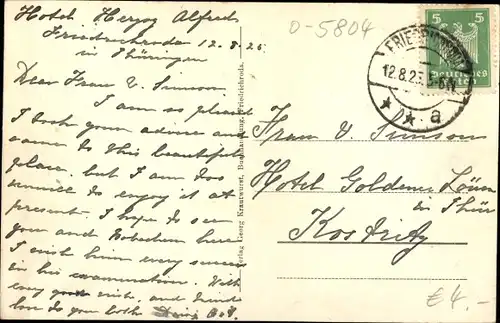 Hotel Herzog Alfred
Friedrichroda 12.8.25
in Thüringen
Dear Frau V. Simson
I am so pleased
I took your advice and
came to this beautiful
place. but I am too
to enjoy it at
present. I hope to see
you and here
I wish him every success
in his examination. With
every good wish, and
to you both
Verlag Georg Krautwurst, Buchhandlung, Friedrichroda.
D-5804
FRIEDRICHRODA
12.8.25 5-6N
* * a
5 5
Deutsches
Reich
Frau V. Simson
Hotel Goldener Löwe
in Thür
Kostritz
€4.-